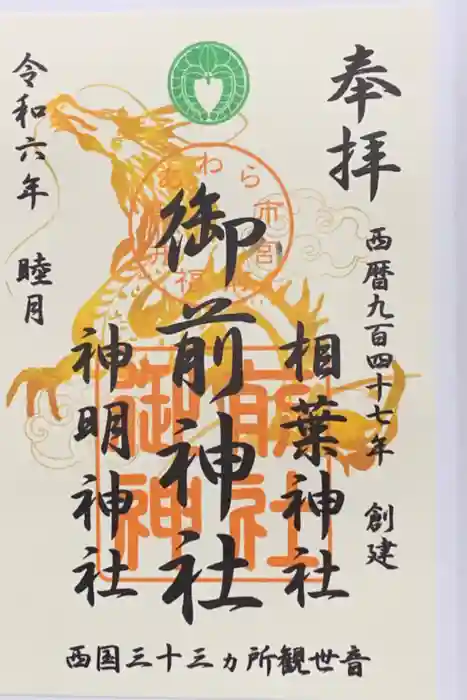 奉拝
西暦九百四十七年 創建
相葉神社
御前神社
神明神社
令和六年 睦月
あわら市宮
福井
御前神社
西国三十三ヵ所観世音